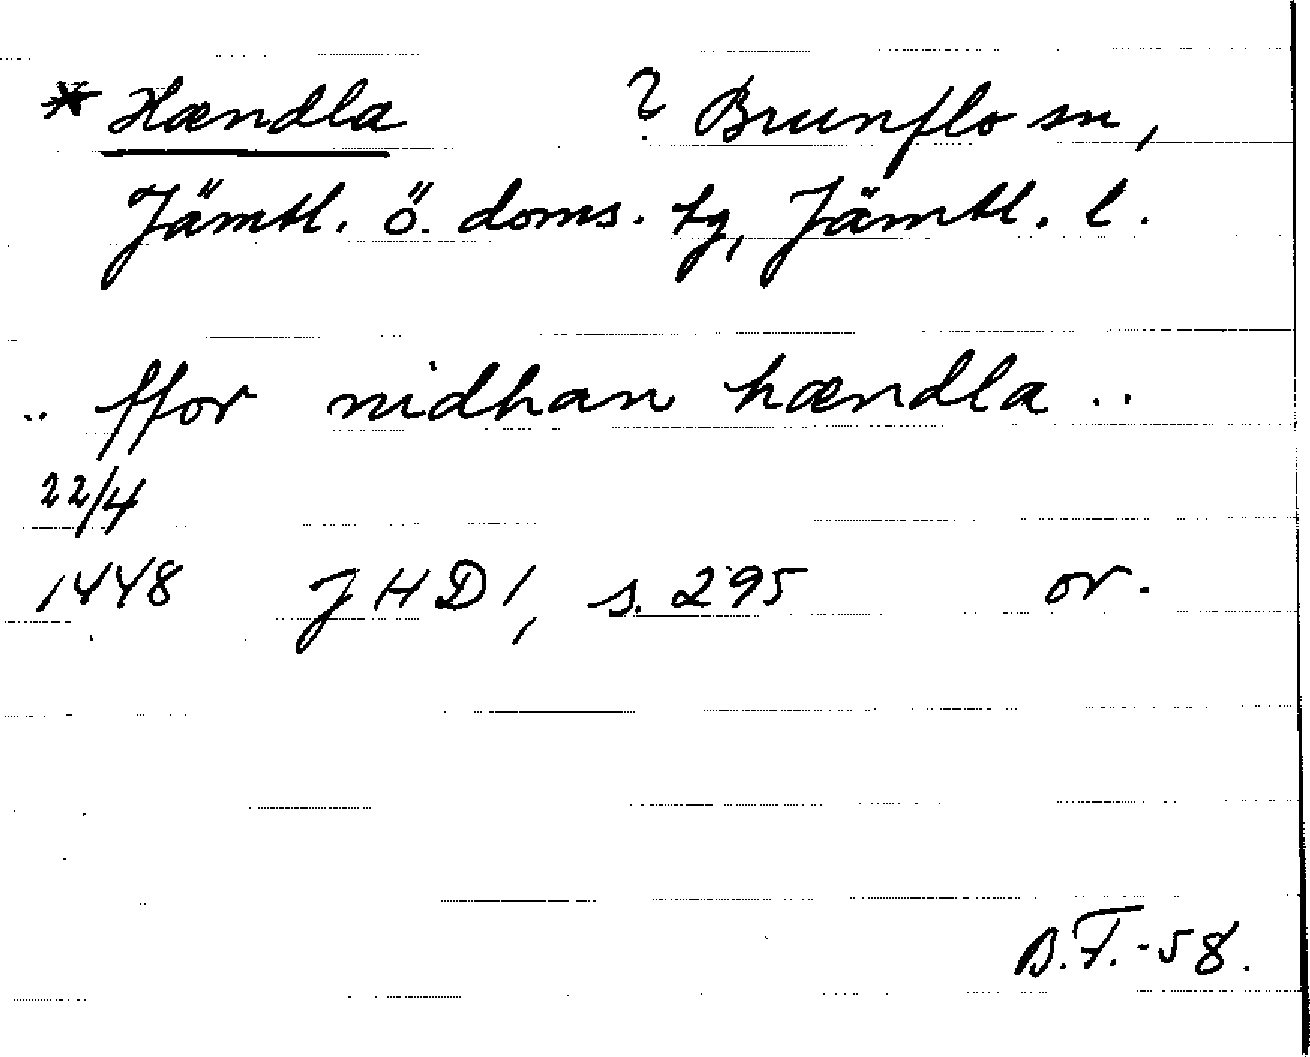 * Hændla ? Brunflo sn,
Jämtl. ö. doms. tg, Jämtl. l.
.. ffor nidhan hændla ..
22/4
1448 JHD 1, s. 295 or.
B.F.-58.